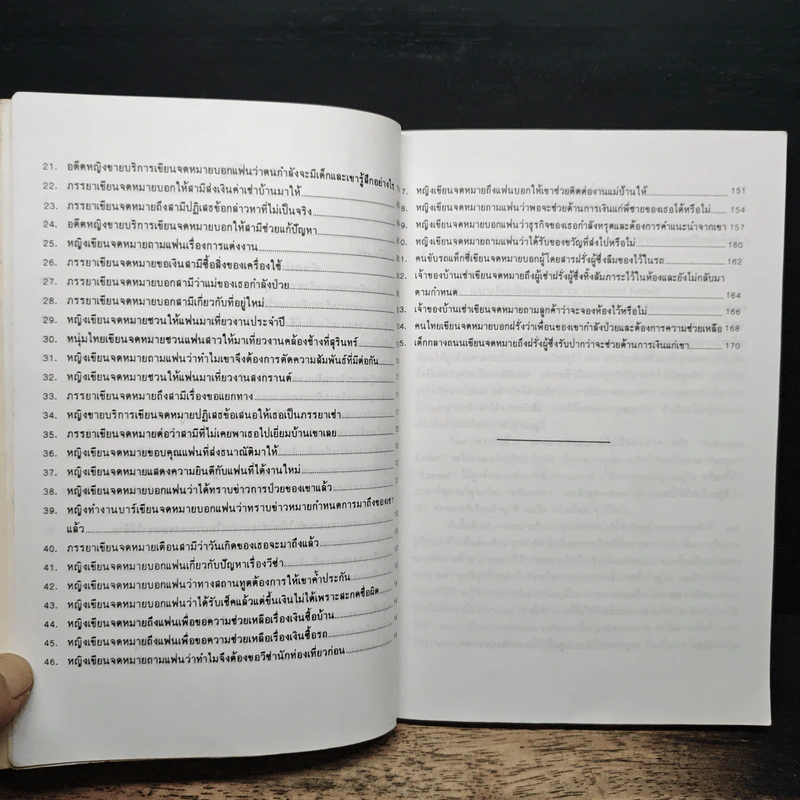 21. อดีตหญิงขายบริการเขียนจดหมายบอกแฟนว่าตนกำลังจะมีเด็กและเขารู้สึกอย่างไร
22. ภรรยาเขียนจดหมายบอกให้สามีส่งเงินค่าเช่าบ้านมาให้
23. ภรรยาเขียนจดหมายถึงสามีปฏิเสธข้อกล่าวหาที่ไม่เป็นจริง
24. อดีตหญิงขายบริการเขียนจดหมายบอกให้สามีช่วยแก้ปัญหา
25. หญิงเขียนจดหมายถามแฟนเรื่องการแต่งงาน
26. ภรรยาเขียนจดหมายขอเงินสามีซื้อสิ่งของเครื่องใช้
27. ภรรยาเขียนจดหมายบอกสามีว่าแม่ของเธอกำลังป่วย
28. ภรรยาเขียนจดหมายบอกสามีเกี่ยวกับที่อยู่ใหม่
29. หญิงเขียนจดหมายชวนให้แฟนมาเที่ยวงานประจำปี
30. หนุ่มไทยเขียนจดหมายชวนแฟนสาวให้มาเที่ยวงานคล้องช้างที่สุรินทร์
31. หญิงเขียนจดหมายถามแฟนว่าทำไมเขาจึงต้องการตัดความสัมพันธ์ที่มีต่อกัน
32. หญิงเขียนจดหมายชวนให้แฟนมาเที่ยวงานสงกรานต์
33. ภรรยาเขียนจดหมายถึงสามีเรื่องขอแยกทาง
34. หญิงขายบริการเขียนจดหมายปฏิเสธข้อเสนอให้เธอเป็นภรรยาเช่า
35. ภรรยาเขียนจดหมายต่อว่าสามีที่ไม่เคยพาเธอไปเยี่ยมบ้านเขาเลย
36. หญิงเขียนจดหมายขอบคุณแฟนที่ส่งธนาณัติมาให้
37. หญิงเขียนจดหมายแสดงความยินดีกับแฟนที่ได้งานใหม่
38. หญิงเขียนจดหมายบอกแฟนว่าได้ทราบข่าวการป่วยของเขาแล้ว
39. หญิงทำงานบาร์เขียนจดหมายบอกแฟนว่าทราบข่าวหมายกำหนดการมาถึงของเขา
แล้ว
40. ภรรยาเขียนจดหมายเตือนสามีว่าวันเกิดของเธอจะมาถึงแล้ว
41. หญิงเขียนจดหมายบอกแฟนเกี่ยวกับปัญหาเรื่องวีซ่า
42. หญิงเขียนจดหมายบอกแฟนว่าทางสถานทูตต้องการให้เขาค้ำประกัน
43. หญิงเขียนจดหมายบอกแฟนว่าได้รับเช็คแล้วแต่ขึ้นเงินไม่ได้เพราะสะกดชื่อผิด
44. หญิงเขียนจดหมายถึงแฟนเพื่อขอความช่วยเหลือเรื่องเงินซื้อบ้าน
45. หญิงเขียนจดหมายถึงแฟนเพื่อขอความช่วยเหลือเรื่องเงินซื้อรถ
46. หญิงเขียนจดหมายถามแฟนว่าทำไมจึงต้องขอวีซ่านักท่องเที่ยวก่อน
7. หญิงเขียนจดหมายถึงแฟนบอกให้เขาช่วยติดต่องานแม่บ้านให้ 151
8. หญิงเขียนจดหมายถามแฟนว่าพอจะช่วยด้านการเงินแก่พี่ชายของเธอได้หรือไม่ 154
9. หญิงเขียนจดหมายบอกแฟนว่าธุรกิจของเธอกำลังทรุดและต้องการคำแนะนำจากเขา 157
หญิงเขียนจดหมายถามแฟนว่าได้รับของขวัญที่ส่งไปหรือไม่ 160
คนขับรถแท็กซี่เขียนจดหมายบอกผู้โดยสารฝรั่งผู้ซึ่งลืมของไว้ในรถ 162
เจ้าของบ้านเช่าเขียนจดหมายถึงผู้เช่าฝรั่งผู้ซึ่งทิ้งสัมภาระไว้ในห้องและยังไม่กลับมา
ตามกำหนด 164
3. เจ้าของบ้านเช่าเขียนจดหมายถามลูกค้าว่าจะจองห้องไว้หรือไม่ 166
4. คนไทยเขียนจดหมายบอกฝรั่งว่าเพื่อนของเขากำลังป่วยและต้องการความช่วยเหลือ 168
5. เด็กกลางถนนเขียนจดหมายถึงฝรั่งผู้ซึ่งรับปากว่าจะช่วยด้านการเงินแก่เขา 170